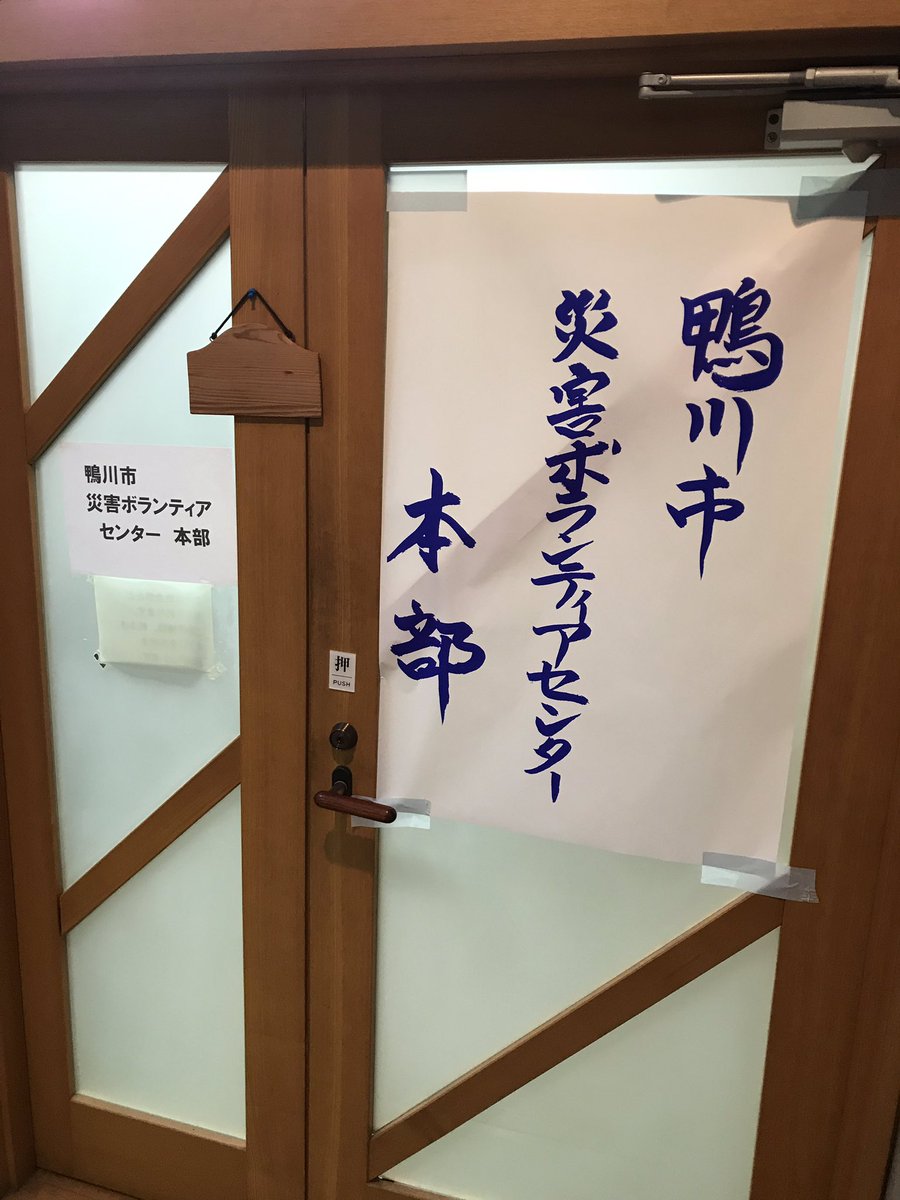 鴨川市
災害ボランティアセンター
本部
鴨川市
災害ボランティア
センター 本部
押
PUSH